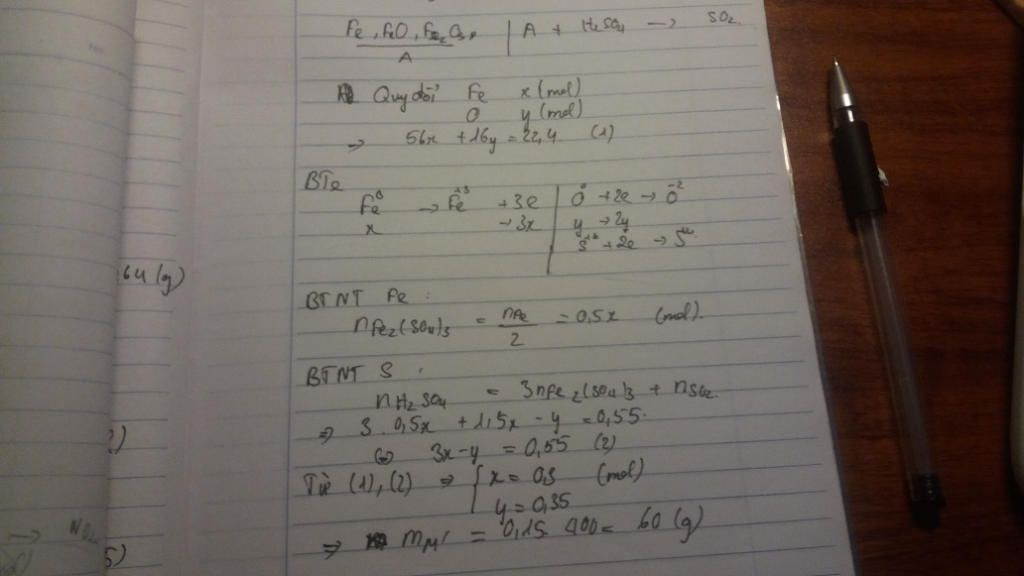 Fe, FeO, Fe2O3, | A + H2SO4 → SO2
A
Quy đổi Fe x (mol)
O y (mol)
⇒ 56x + 16y = 22,4 (1)
BTe
Fe⁰ → Fe⁺³ + 3e | O⁰ + 2e → O⁻²
x → 3x | y → 2y
S⁺⁶ + 2e → S⁺⁴
64 (g)
BTNT Fe :
nFe2(SO4)3 = nFe/2 = 0,5x (mol).
BTNT S :
nH2SO4 = 3nFe2(SO4)3 + nSO2
⇒ 3. 0,5x + 1,5x - y = 0,55.
⇔ 3x - y = 0,55 (2)
Từ (1), (2) ⇒ { x = 0,3 (mol)
y = 0,35
⇒ mM' = 0,15. 400 = 60 (g)